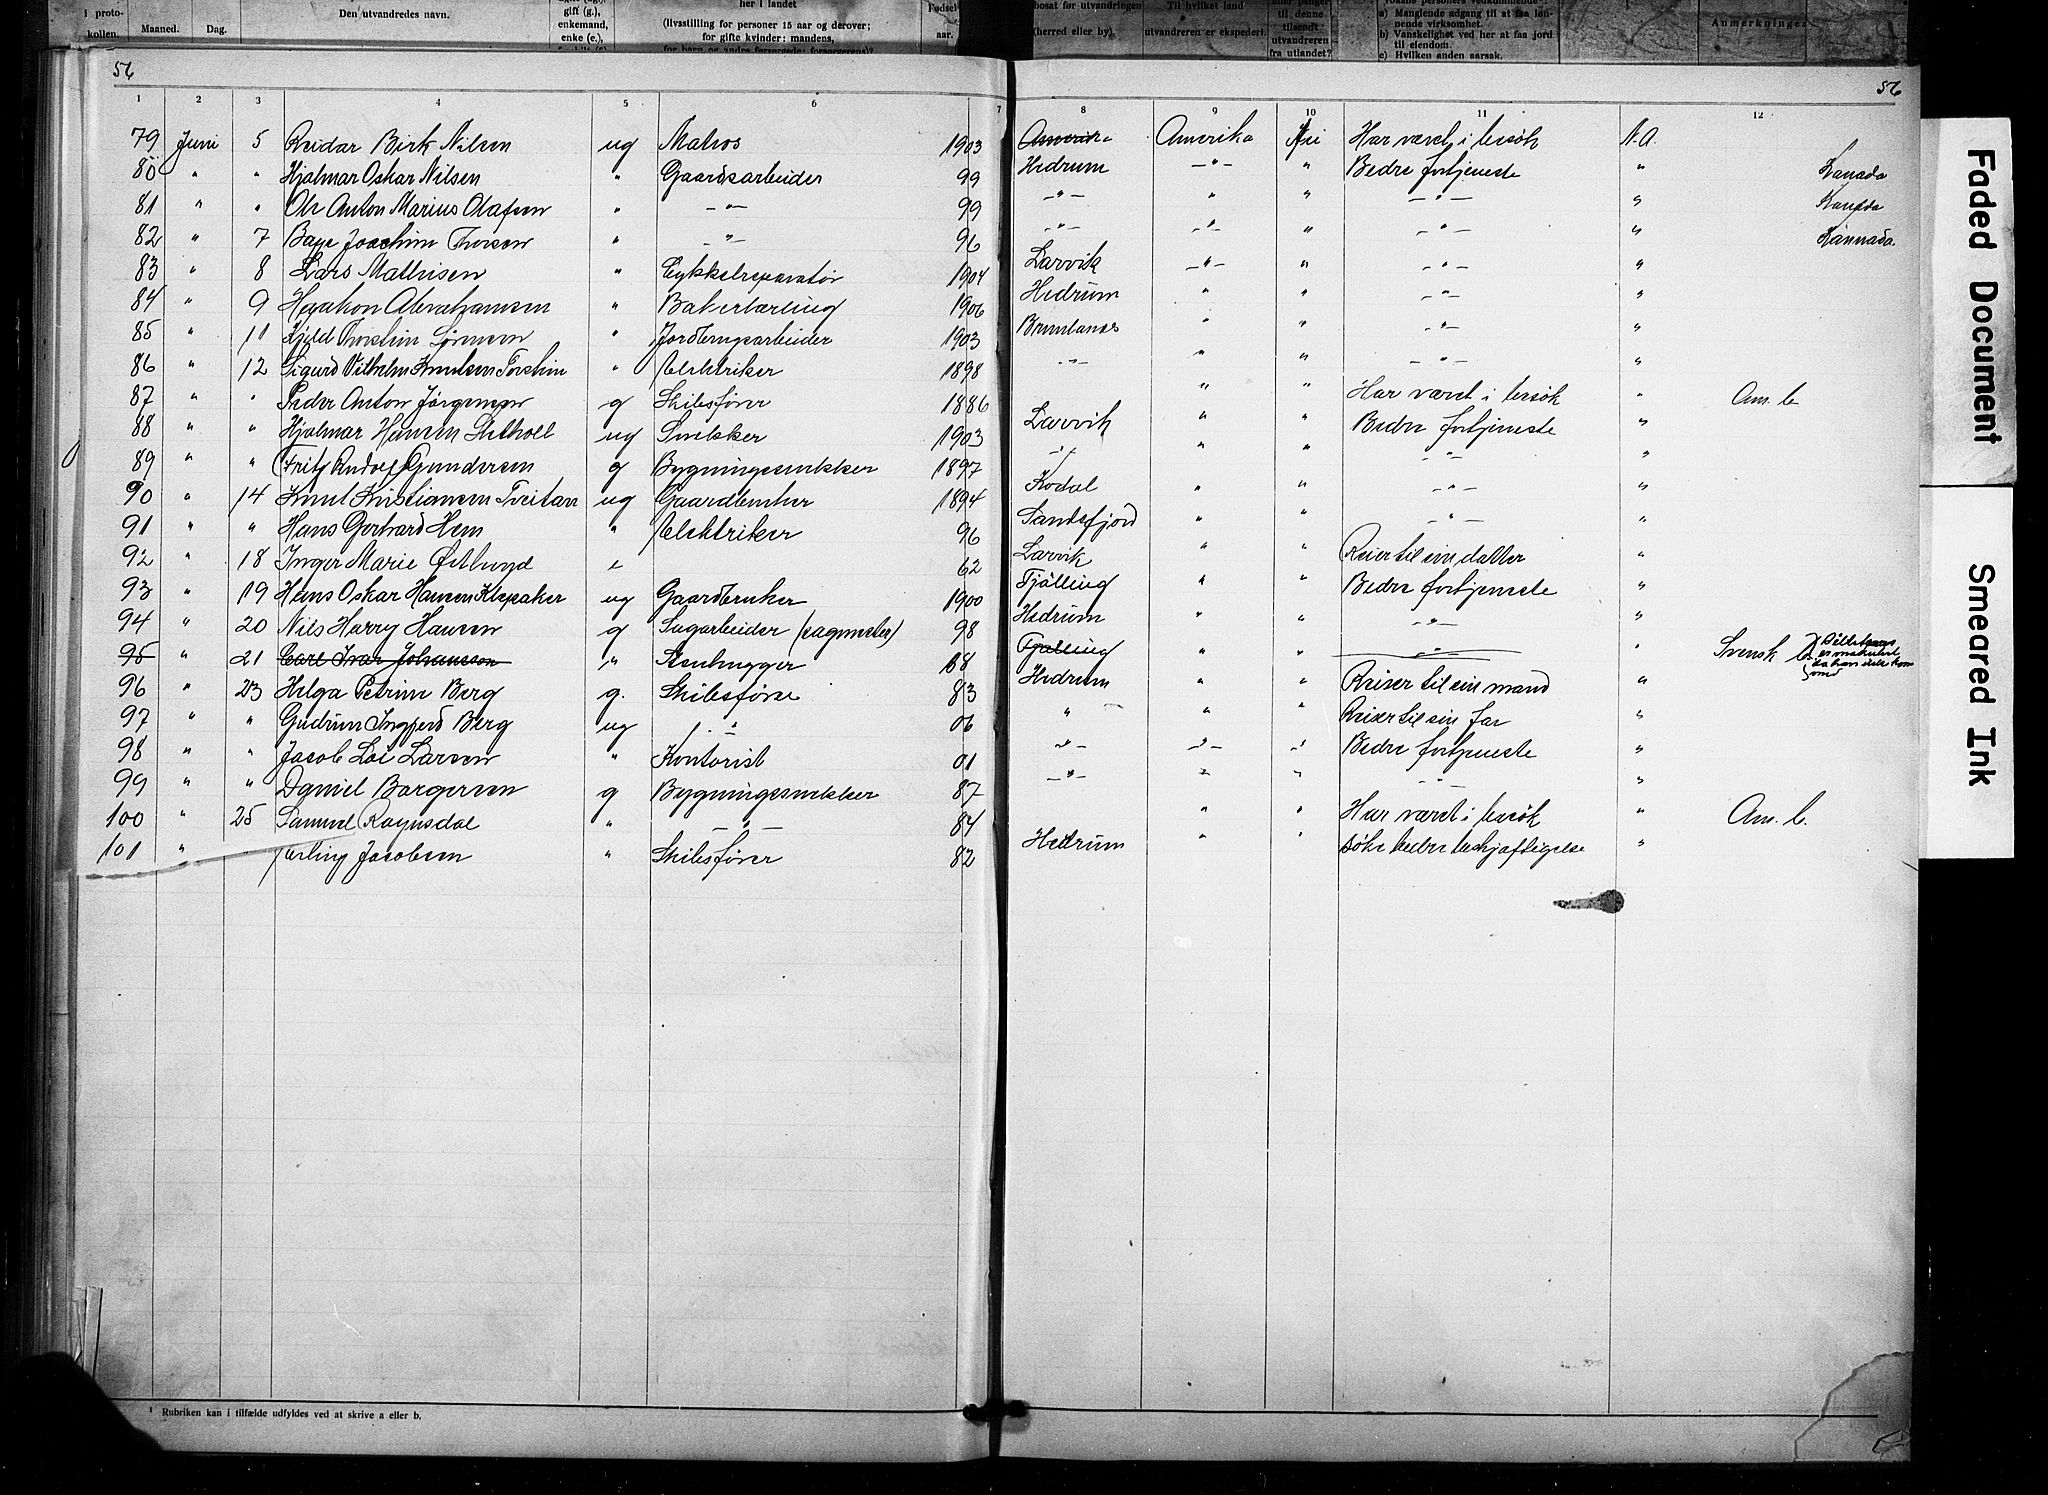 i proto-kollen. Maaned. Dag. Den utvandredes navn. gift (g.), enkemand, enke (e.), her i landet (livsstilling for personer 15 aar og derover; for gifte kvinder: mandens, Fødsels-aar. bosat før utvandringen (herred eller by). Til hvilket land utvandreren er ekspedert. til denne tilsendt utvandreren fra utlandet? a) Manglende adgang til at faa lønnende virksomhet. b) Vanskelighet ved her at faa jord til eiendom. c) Hvilken anden aarsak. Anmerkninger
56 56
1 2 3 4 5 6 7 8 9 10 11 12
79 Juni 5 Reidar Birk Nilsen ug Matros 1903 Amerika Amerika Har været i besök N.A.
80 " " Hjalmar Oskar Nilsen " Gaardsarbeider 99 Hedrum -"- " Bedre fortjeneste " Kanada
81 " " Ole Anton Marius Olafsen " -"- 99 -"- " " -"- " Kanada
82 " 7 Joachim Thorsen " -"- 96 -"- -"- " -"- " Kannada
83 " 8 Lars Mathisen " Cykkelreparatör 1904 Larvik -"- " -"- "
84 " 9 Haakon Abrahamsen " Bakerlærling 1906 Hedrum " " -"- "
85 " 11 Kjeld Thorstein Sörensen " Jordbrugsarbeider 1903 Brunlanes " " -"- "
86 " 12 Sigurd Vilhelm Knutsen Torstein " Elektriker 1898 -"- " " -"- "
87 " " Peder Anton Jörgensen g Skibsförer 1886 " " Har været i besök " Am. b.
88 " " Hjalmar Hansen ug Snekker 1903 Larvik " " Bedre fortjeneste "
89 " " Fritz Rudolf Gundersen g Bygningssnekker 1897 -"- " " -"- "
90 " 14 Knut Kristiansen Tveitan ug Gaardbruker 1894 Kodal " " -"- "
91 " " Hans Gerhard Hem " Elektriker 96 Sandefjord " " -"- "
92 " 18 Inger Marie Østbyyd e 62 Larvik " " Reiser til sin datter "
93 " 19 Hans Oskar Hansen Klepaker ug Gaardbruker 1900 Tjölling " " Bedre fortjeneste "
94 " 20 Nils Harry Hansen g Sagarbeider (sagmester) 98 Hedrum " " -"- "
95 " 21 Carl Ivar Johansson " Stenhugger 68 Tjölling " " -"- " Svensk b.
96 " 23 Helga Petrine Berg g. Skibsförer 83 Hedrum " " Reiser til sin mand "
97 " " Gudrun Ingjerd Berg ug -"- 06 " " " Reiser til sin far "
98 " " Jacob Loi Larsen " Kontorist 01 -"- -"- " Bedre fortjeneste "
99 " " Daniel Borgersen g Bygningssnekker 87 -"- " " -"- "
100 " 25 Samuel Ragnsdal " -"- 84 " " Har været i besök " Am. b.
101 " Erling Jacobsen " Skibsförer 82 Hedrum " " söke bedre beskjæftigelse "
¹ Rubriken kan i tilfælde utfyldes ved at skrive a eller b.
Faded Document
Smeared Ink